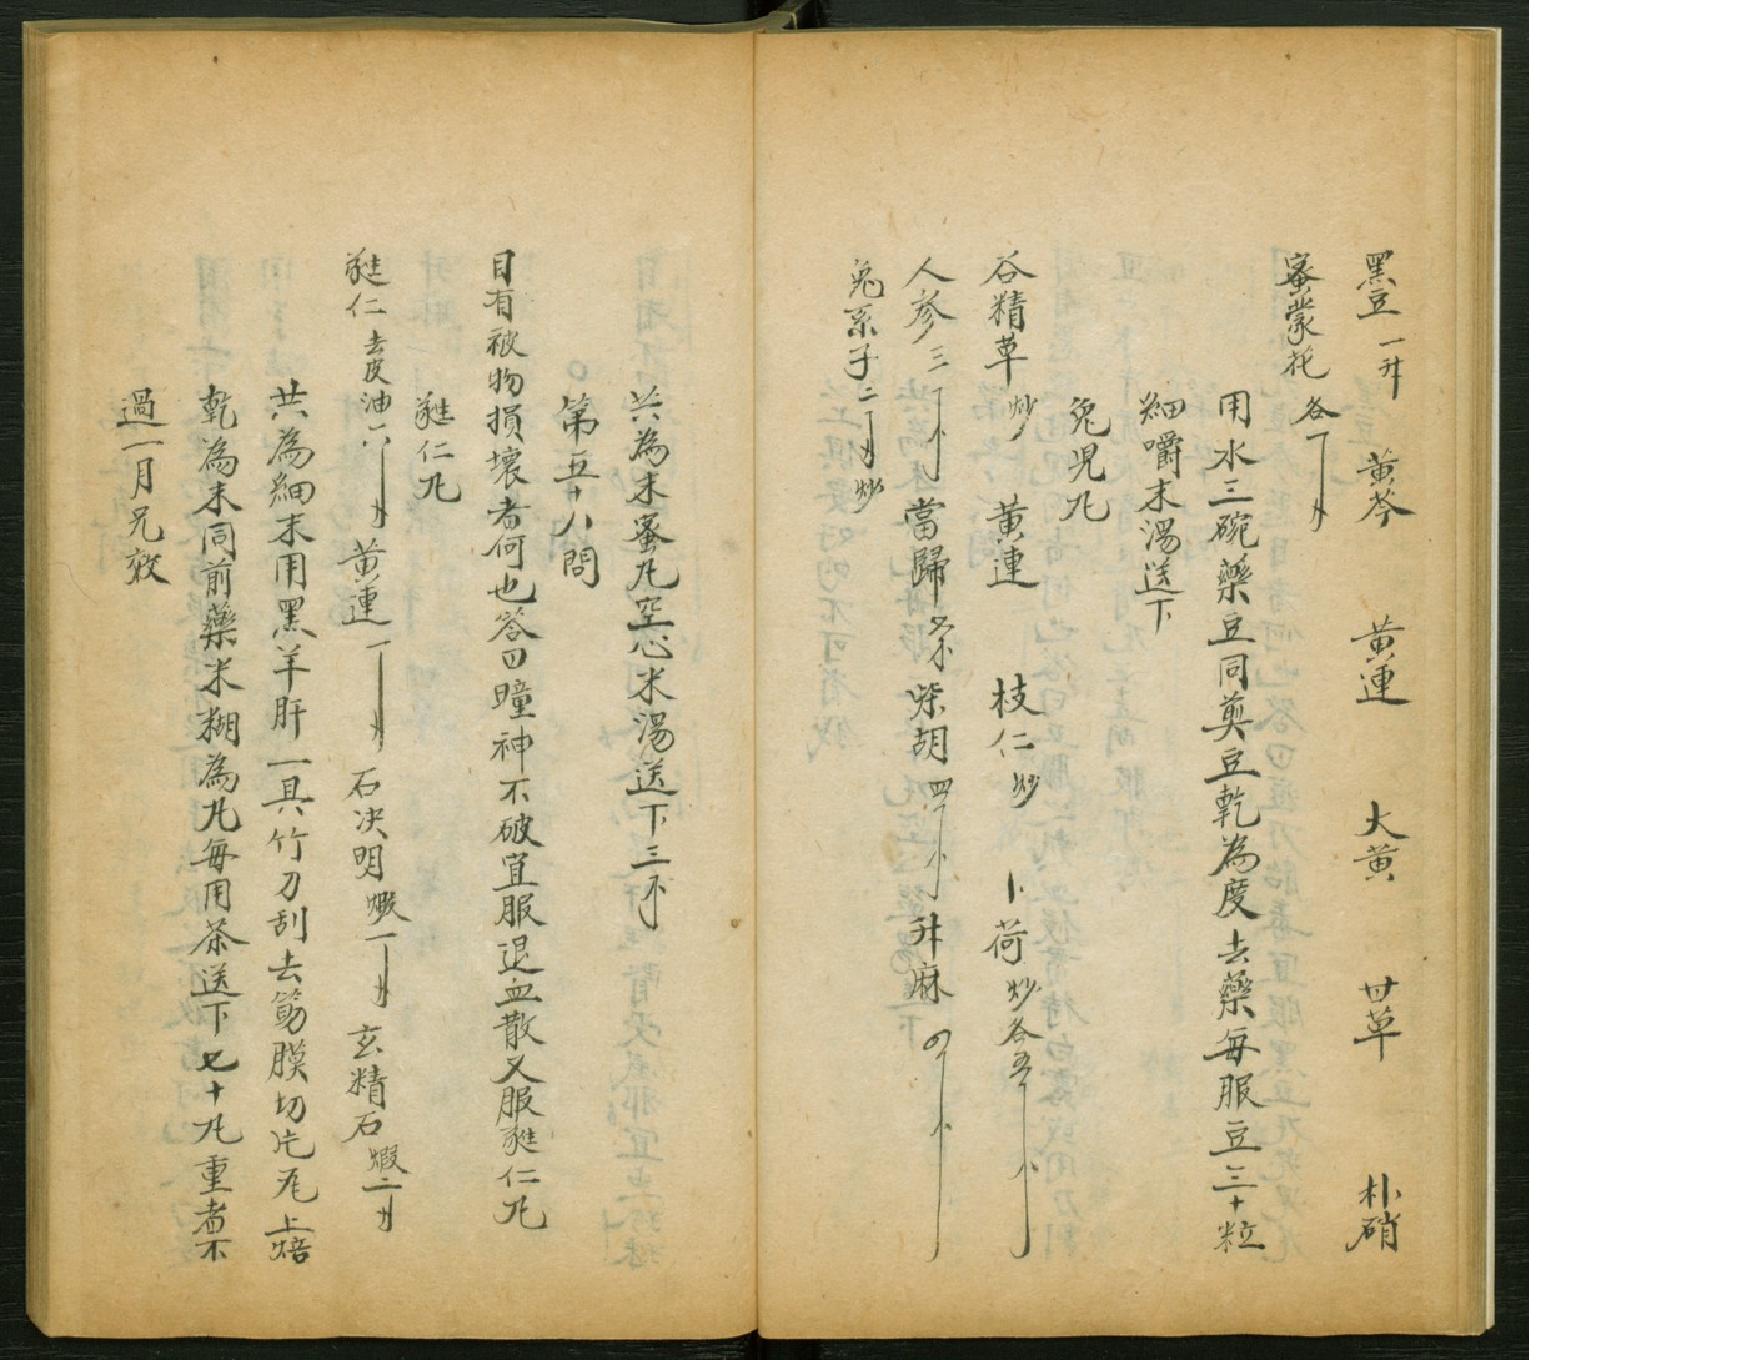 黑豆一升 黄芩 黄連 大黄 甘草 朴硝
蜜蒙花各一
用水三碗藥豆同煎豆乾為度去藥每服豆三十粒
細嚼末湯送下
兔児丸
谷精草炒 黄連 枝仁炒 卜荷炒各五
人參三 當歸 柴胡四 升麻
兔系子二 炒
共為末蜜丸空心米湯送下三
○第五十八問
目有被物損壞者何也答曰瞳神不破宜服退血散又服蕤仁丸
蕤仁丸
蕤仁去皮油六 黄連一 石决明煅一 玄精石煅二
共為細末用黑羊肝一具竹刀刮去筋膜切片瓦上焙
乾為末同前藥米糊為丸每用茶送下七十丸重者不
過一月見效